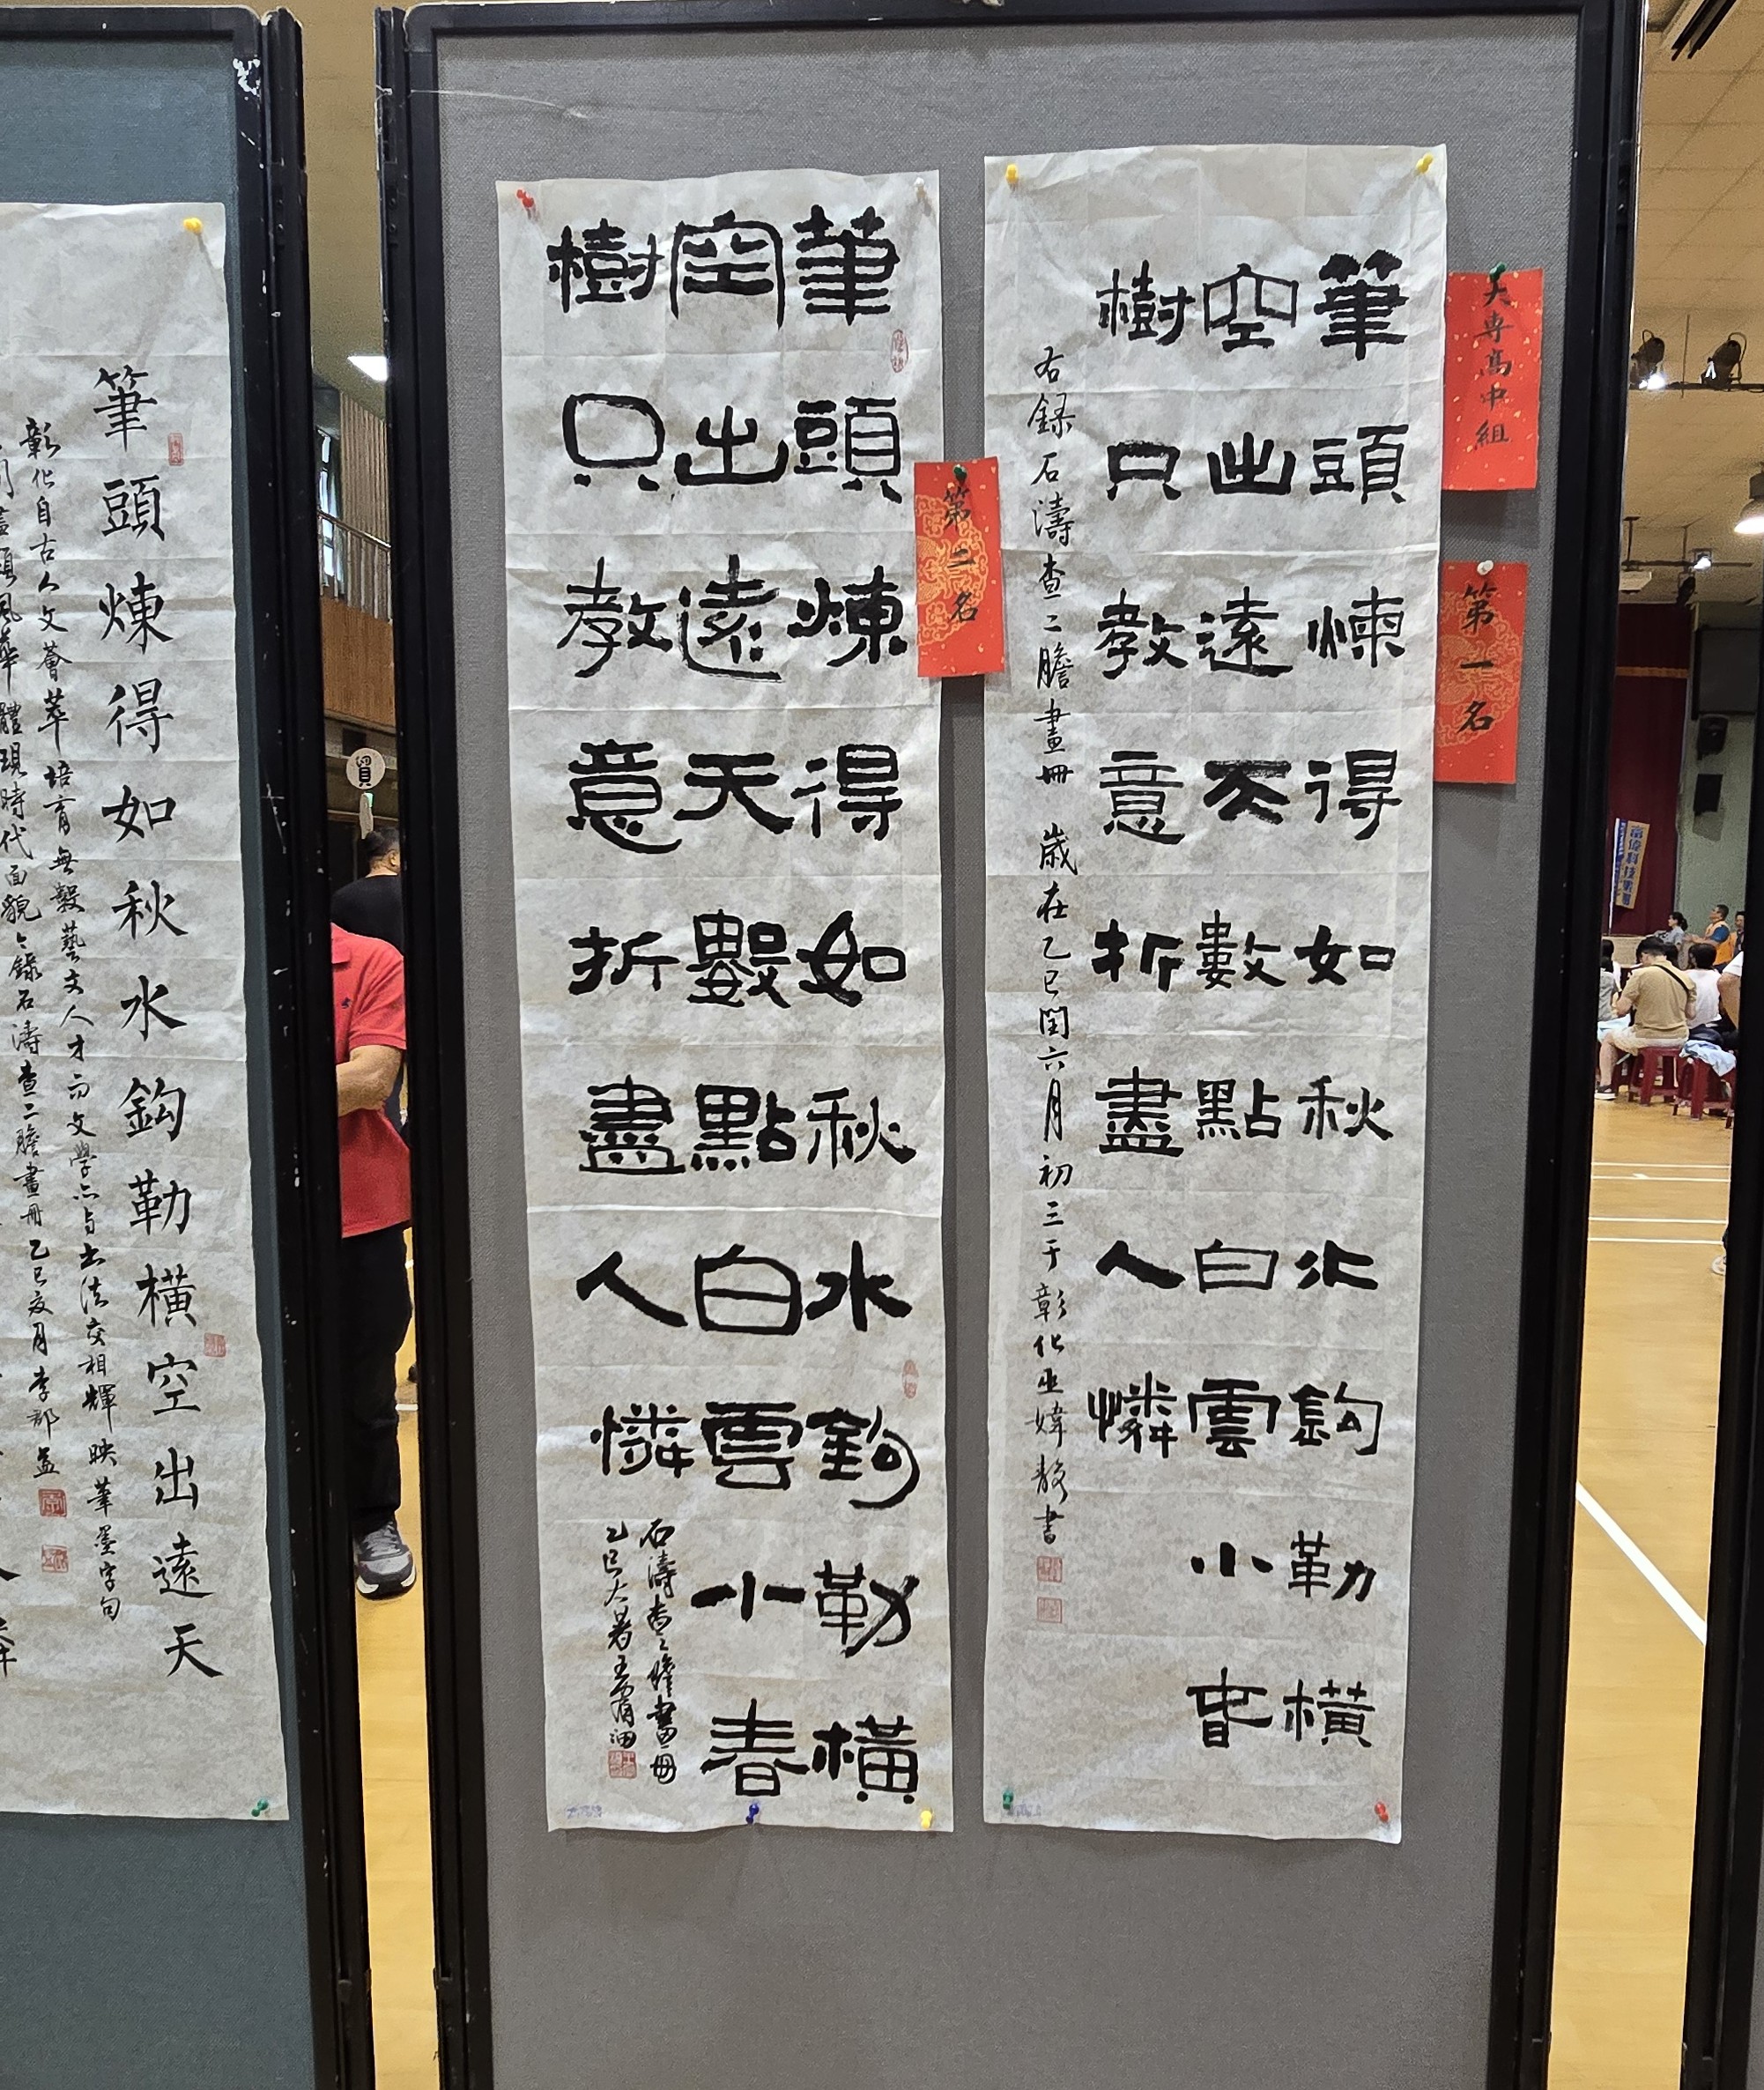 大專高中組
第一名
筆頭煉得如秋水鈎勒橫
空出遠天數點白雲小春
樹只教意折盡人憐
右録石濤查二瞻畫冊 歲在乙巳閏六月初三于彰化巫媁靜書
第二名
筆頭煉得如秋水鈎勒橫
空出遠天數點白雲小春
樹只教意折盡人憐
石濤查二瞻畫冊
乙巳大暑王宥
筆頭煉得如秋水鈎勒橫空出遠天
彰化自古人文薈萃培育無數藝文人才而文學亦與書法交相輝映筆墨字句
盡頭風華體現時代面貌今錄石濤查二瞻畫冊乙巳夏月李郡益
富偉科技